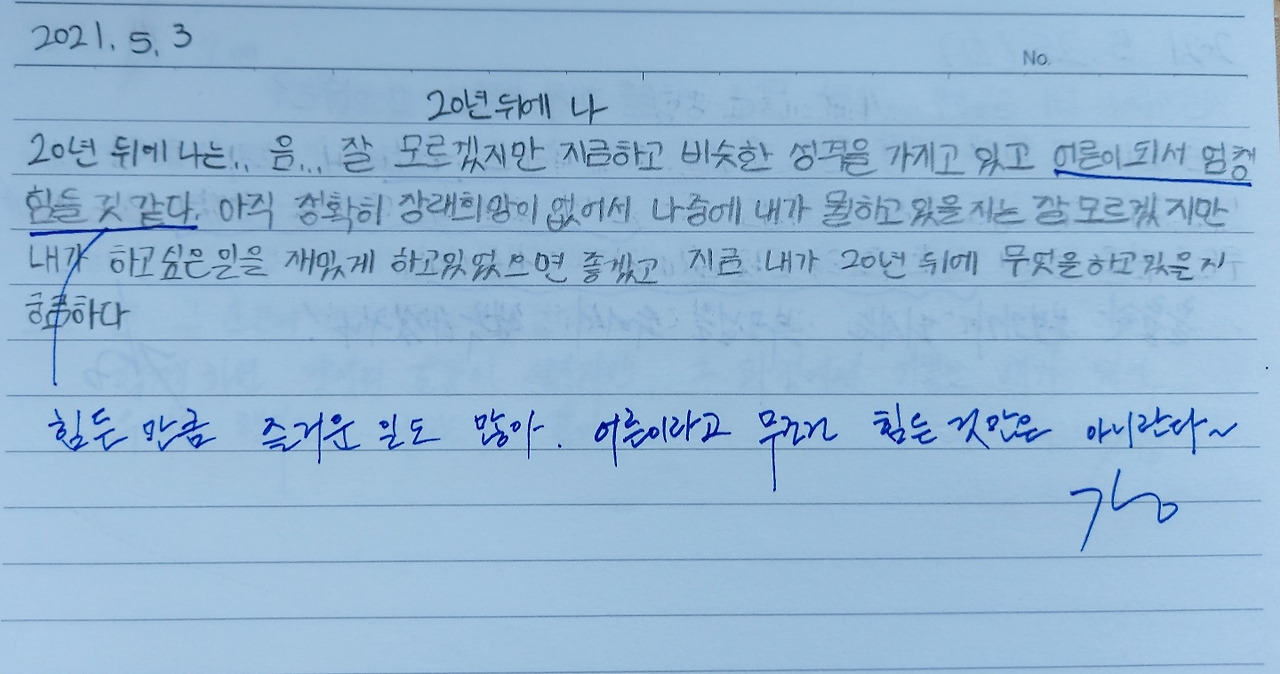 2021. 5. 3
No.
20년 뒤에 나
20년 뒤에 나는.. 음... 잘 모르겠지만 지금하고 비슷한 성격을 가지고 있고 어른이 되서 엄청
힘들 것 같다. 아직 정확히 장래희망이 없어서 나중에 내가 뭘하고 있을 지는 잘 모르겠지만
내가 하고싶은 일을 재밌게 하고있었으면 좋겠고 지금 내가 20년 뒤에 무엇을 하고 있을지
궁금하다
힘든 만큼 즐거운 일도 많아. 어른이라고 무조건 힘든 것만은 아니란다~